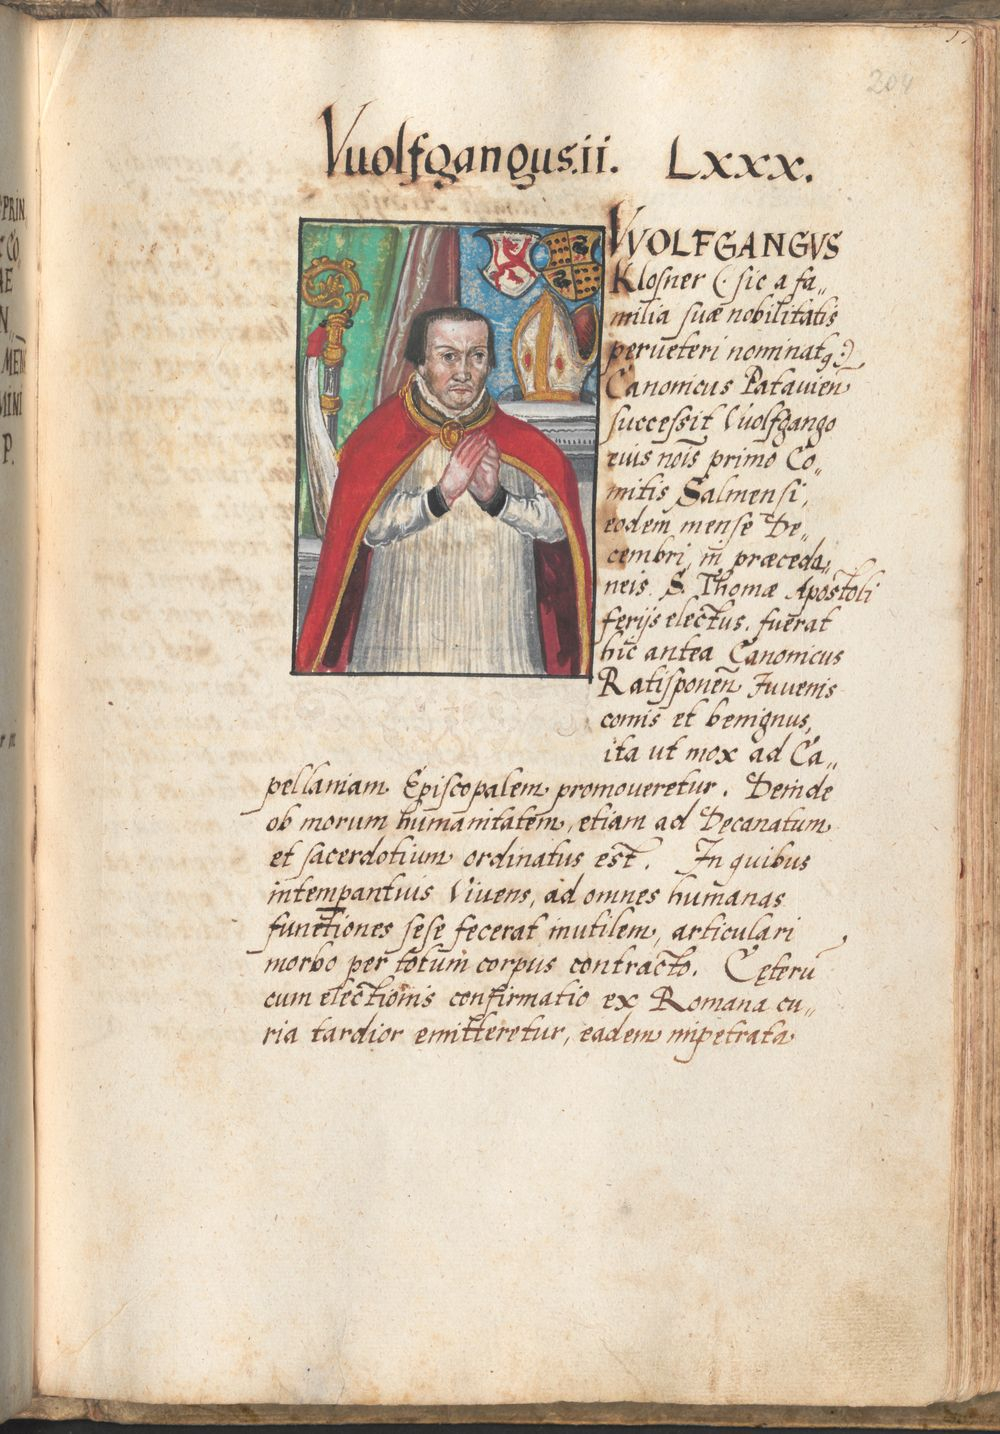 204
Vuolfgangus.ii. Lxxx.
VVOLFGANGVS
Klosner (: sic a fa„
milia suæ nobilitatis
perueteri nominatꝯ:)
Canonicus Patauien̄
successit Vuolfgango
eius nōis primo Co„
mitis Salmensi,
eodem mense De„
cembri, in præceda„
neis S. Thomæ Apostoli
ferijs electus. fuerat
hic antea Canonicus
Ratisponen̄ Juuenis
comis et benignus,
ita ut mox ad Ca„
pellaniam Episcopalem promoueretur. Deinde
ob morum humanitatem, etiam ad Decanatum
et sacerdotium ordinatus est. In quibus
intemꝑantius Viuens, ad omnes humanas
functiones sese fecerat inutilem, articulari
morbo per totum corpus contracto. Cęterū
cum electionis confirmatio ex Romana cu„
ria tardior emitteretur, eadem impetrata
PRIN
CO,
AE
N„
MEN
MINI
P.